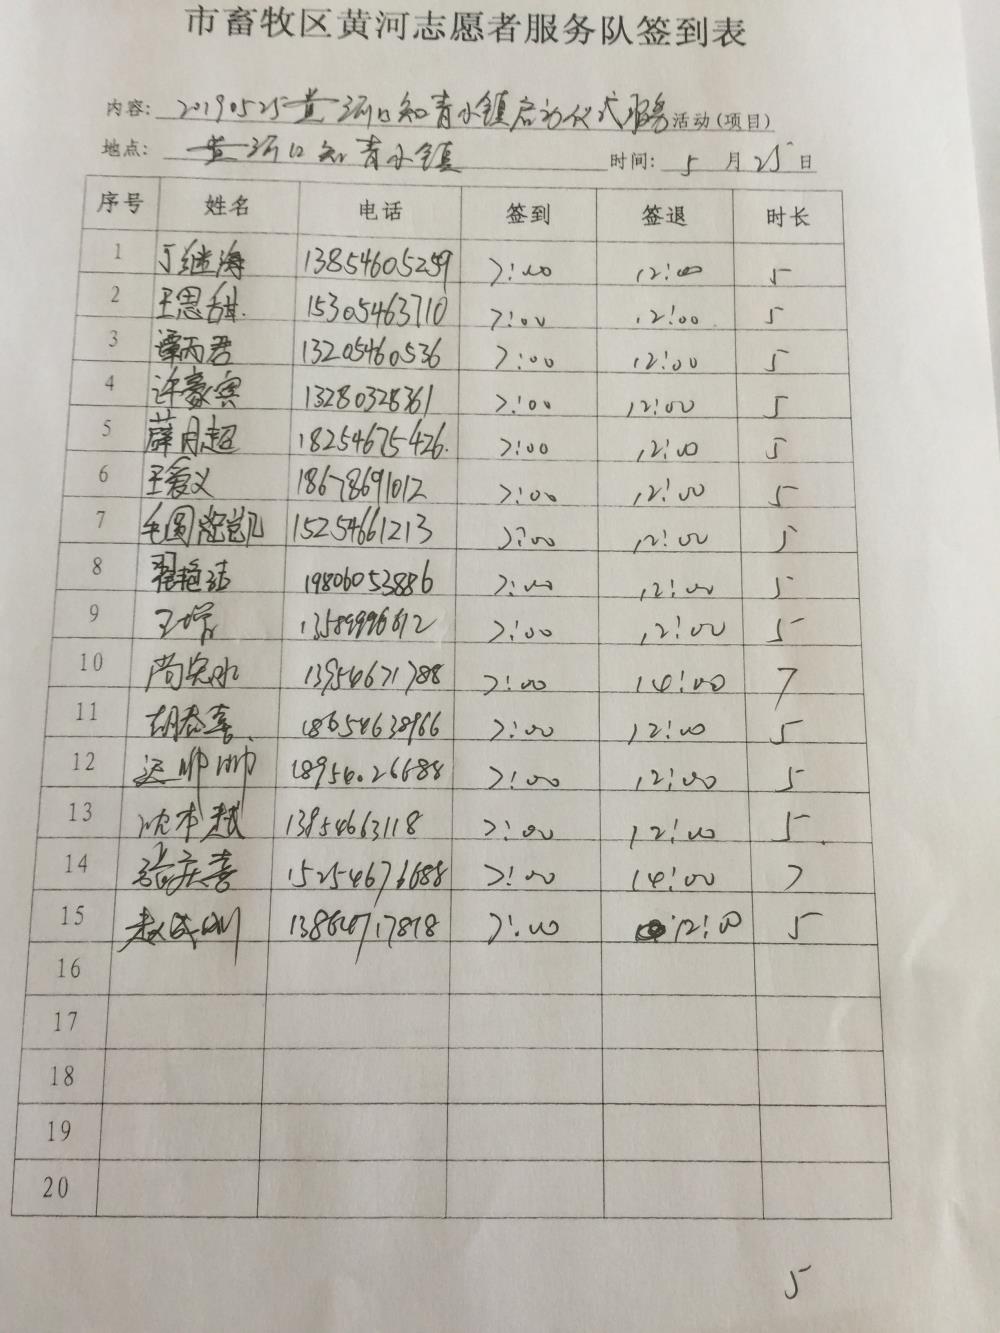 市畜牧区黄河志愿者服务队签到表
内容: 20190525黄河口知青小镇启动仪式服务活动(项目)
地点: 黄河口知青小镇 时间: 5月25日
序号 姓名 电话 签到 签退 时长
1 丁继海 13854605259 7:00 12:00 5
2 王思甜 15305463710 7:00 12:00 5
3 谭丙君 13205460536 7:00 12:00 5
4 许豪宾 13280328361 7:00 12:00 5
5 薛月超 18254675426 7:00 12:00 5
6 王爱义 18678691012 7:00 12:00 5
7 毛圆 凯 15254661213 7:00 12:00 5
8 翟艳洁 19806053886 7:00 12:00 5
9 王 13589996612 7:00 12:00 5
10 尚 13954671788 7:00 14:00 7
11 胡春喜 18654638966 7:00 12:00 5
12 帅帅 7:00 12:00 5
13 本 13954663118 7:00 12:00 5
14 张庆喜 15254676688 7:00 14:00 7
15 赵成刚 7:00 12:00 5
16
17
18
19
20
5